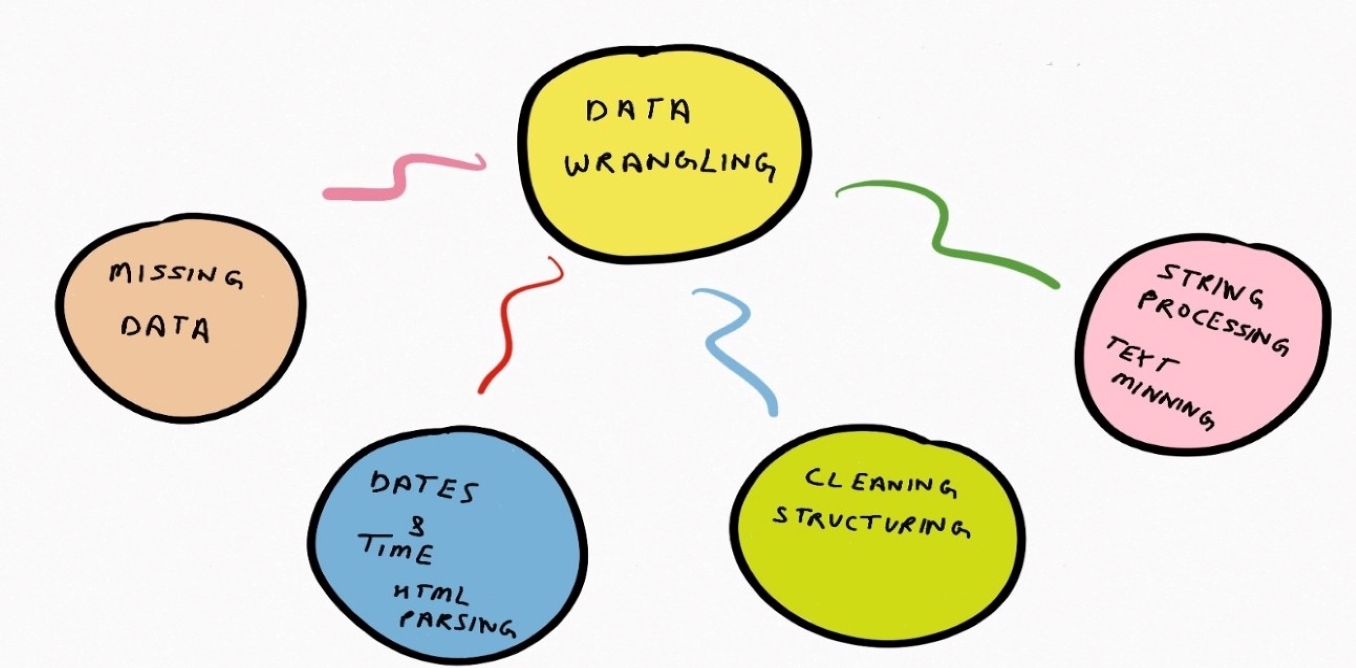 DATA
WRANGLING
MISSING
DATA
DATES
&
TIME
HTML
PARSING
CLEANING
STRUCTURING
STRING
PROCESSING
TEXT
MINNING